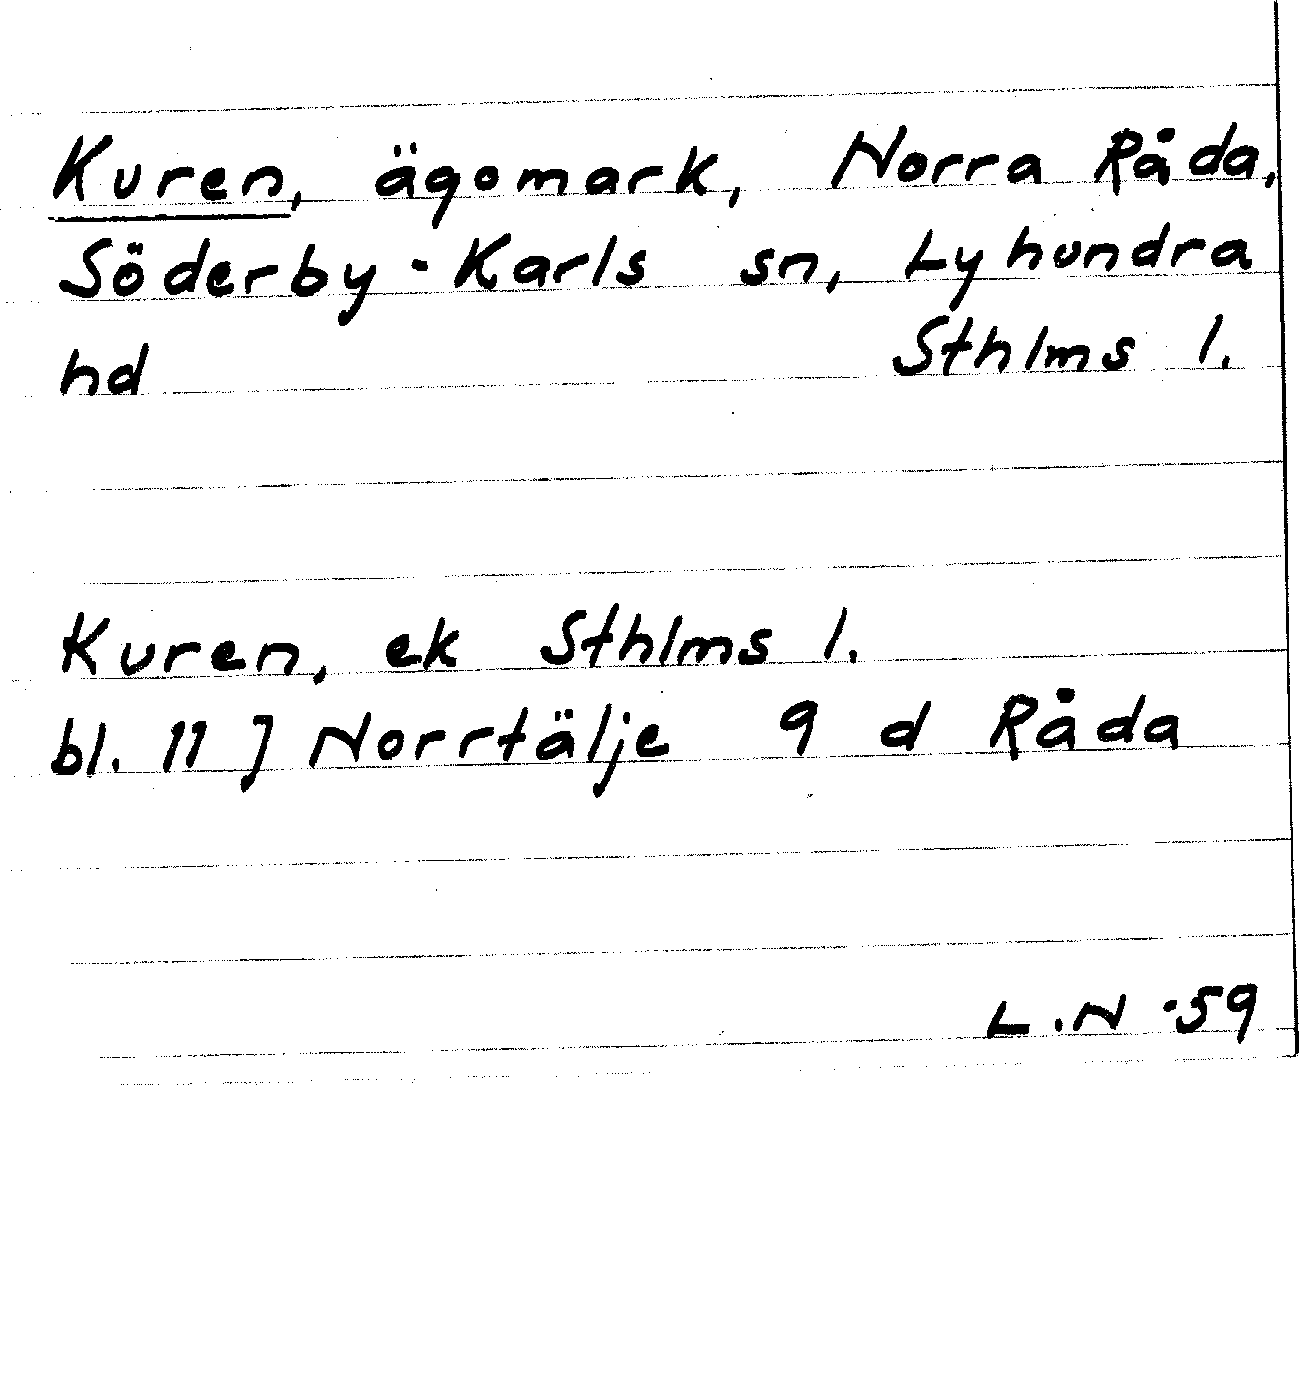 Kuren, ägomark, Norra Råda,
Söderby-Karls sn, Lyhundra
hd Sthlms l.
Kuren, ek Sthlms l.
bl. 11 J Norrtälje 9 d Råda
L.N -59